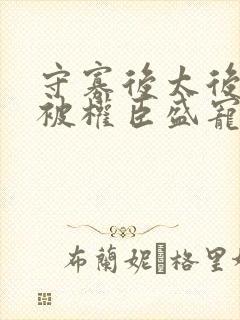 守寡後太後
被權臣盛寵
布蘭妮�格里